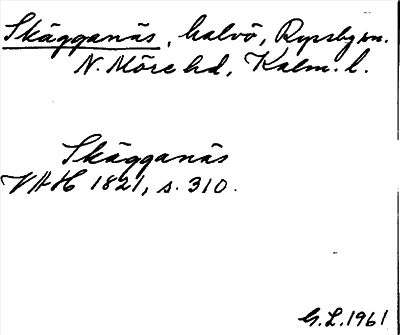 Skägganäs, halvö, Ryssby sn.
N. Möre hd, Kalm. l.
Skägganäs
VAH 1821, s. 310.
G.L. 1961